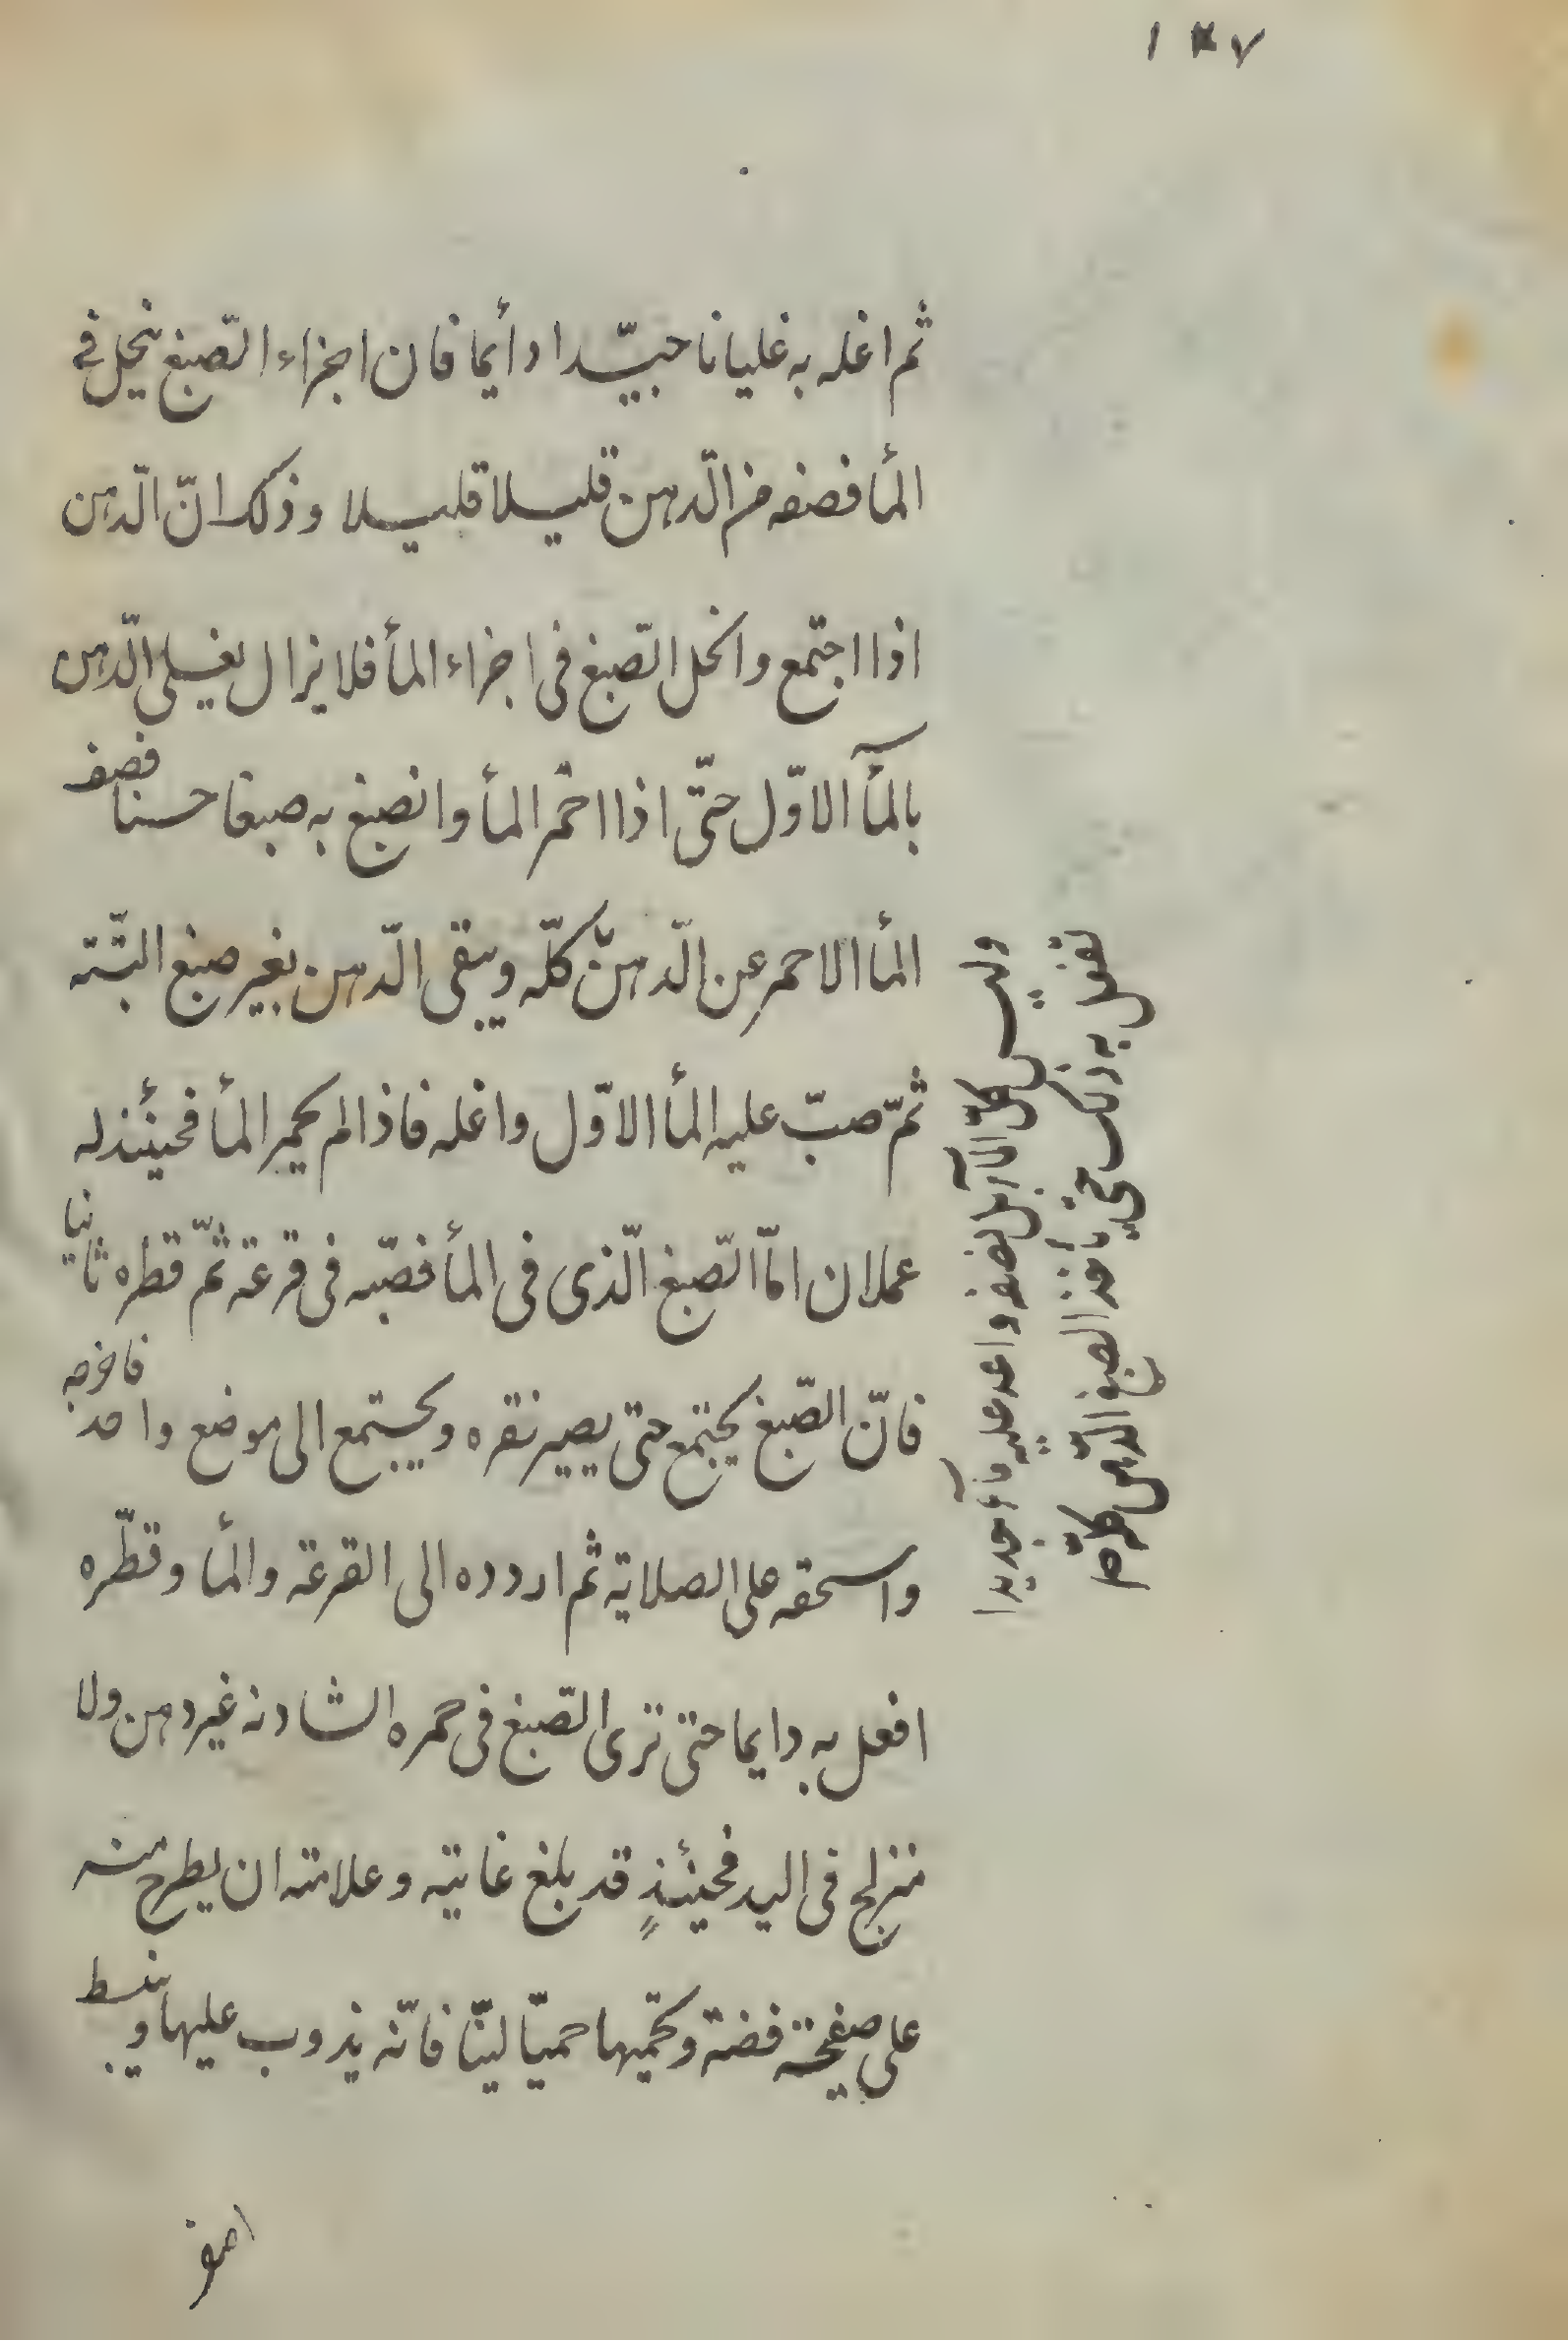 ١٣٧
ثم اغله به غليانا جيّدا دأيما فان اجزاء الصّبغ ينحل في
المأ فصفه من الدّهن قليلا قليلا وذلك انّ الدّهن
اذا اجتمع وانحل الصّبغ فى اجزاء المأ فلا يزال يغلى الدّهن
بالمآء الاوّل حتّى اذا احمّر المأ وانصبغ به صبغا حسنا فصف
المأ الاحمر عن الدّهن كلّه ويبقى الدّهن بغير صبغ البتّه
ثمّ صبّ عليه المأ الاوّل واغله فاذا لم يحمر المأ فحينئذ له
عملان امّا الصّبغ الّذى فى المأ فصّبه فى قرعة ثمّ قطره ثانيا
فانّ الصّبغ يجتمع حتى يصير نقره ويجتمع الى موضع واحد فاخرجه
واسحقه على الصلاية ثم اردده الى القرعة والمأ وقطّره
افعل به دايما حتى ترى الصّبغ فى حمره الشادنه غير دهن ولا
منزلج فى اليد فحينئذٍ قد بلغ غايته وعلامته ان يطرح منه
على صفيحة فضة وتحميها حميّا ليّنا فانّه يذوب عليها وينبسط
وليس كلّ المآء بل نصفه واعد عليه مآء جديدا
تفعل به ذلك حتّى تأخذ الصبغ الدّهن كلّه ثم
اصفر